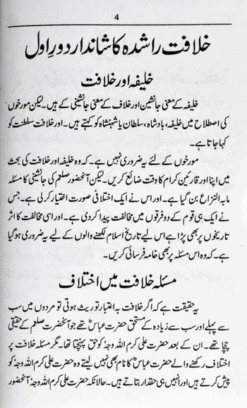 4
خلافت راشدہ کا شاندار دور اول
خلیفہ اور خلافت
خلیفہ کے معنی جانشین اور خلاف کے معنی جانشینی کے ہیں۔ لیکن مورخوں
کی اصطلاح میں خلیفہ، بادشاہ، سلطان یا شہنشاہ کو کہتے ہیں۔ اور خلافت سلطنت کو
کہا جاتا ہے۔
مورخوں کے لئے یہ ضروری نہیں ہے۔ کہ وہ خلیفہ اور خلافت کی بحث
میں اپنا اور قارئین کرام کا وقت ضائع کریں۔ لیکن آنحضور صلعم کی جانشینی کا مسئلہ
مابہ النزاع بن گیا ہے۔ اور اس نے ایک اختلافی صورت اختیار کر لی ہے۔ جس
نے ایک ہی قوم کے دو فرقوں میں مخالفت پیدا کر دی ہے۔ اور اسی مخالفت کا اثر
تاریخوں پر بھی پڑا ہے اس لیے تاریخ اسلام لکھنے والوں کے لیے یہ ضروری ہو گیا
ہے۔ کہ وہ اس مسئلہ پر بھی خامہ فرسائی کریں۔
مسئلہ خلافت میں اختلاف
یہ حقیقت ہے کہ اگر خلافت بہ اعتبار توریث ہوتی تو مردوں میں سب
سے پہلے اور سب سے زیادہ کے مستحق حضرت عباسؓ تھے جو آنحضرت صلعم کے حقیقی
چچا تھے۔ ان کے بعد حضرت علی کرم اللہ وجہہ کو حق پہنچتا تھا۔ مگر مسئلہ خلافت پر
اختلاف رکھنے والے حضرت عباسؓ کا نام بھی نہیں لیتے وہ حضرت علی کرم اللہ وجہہ کو
پیش کرتے ہیں اور انہیں ہی حقدار بتاتے ہیں۔ حالانکہ حضرت علی کرم اللہ وجہہ آنحضور